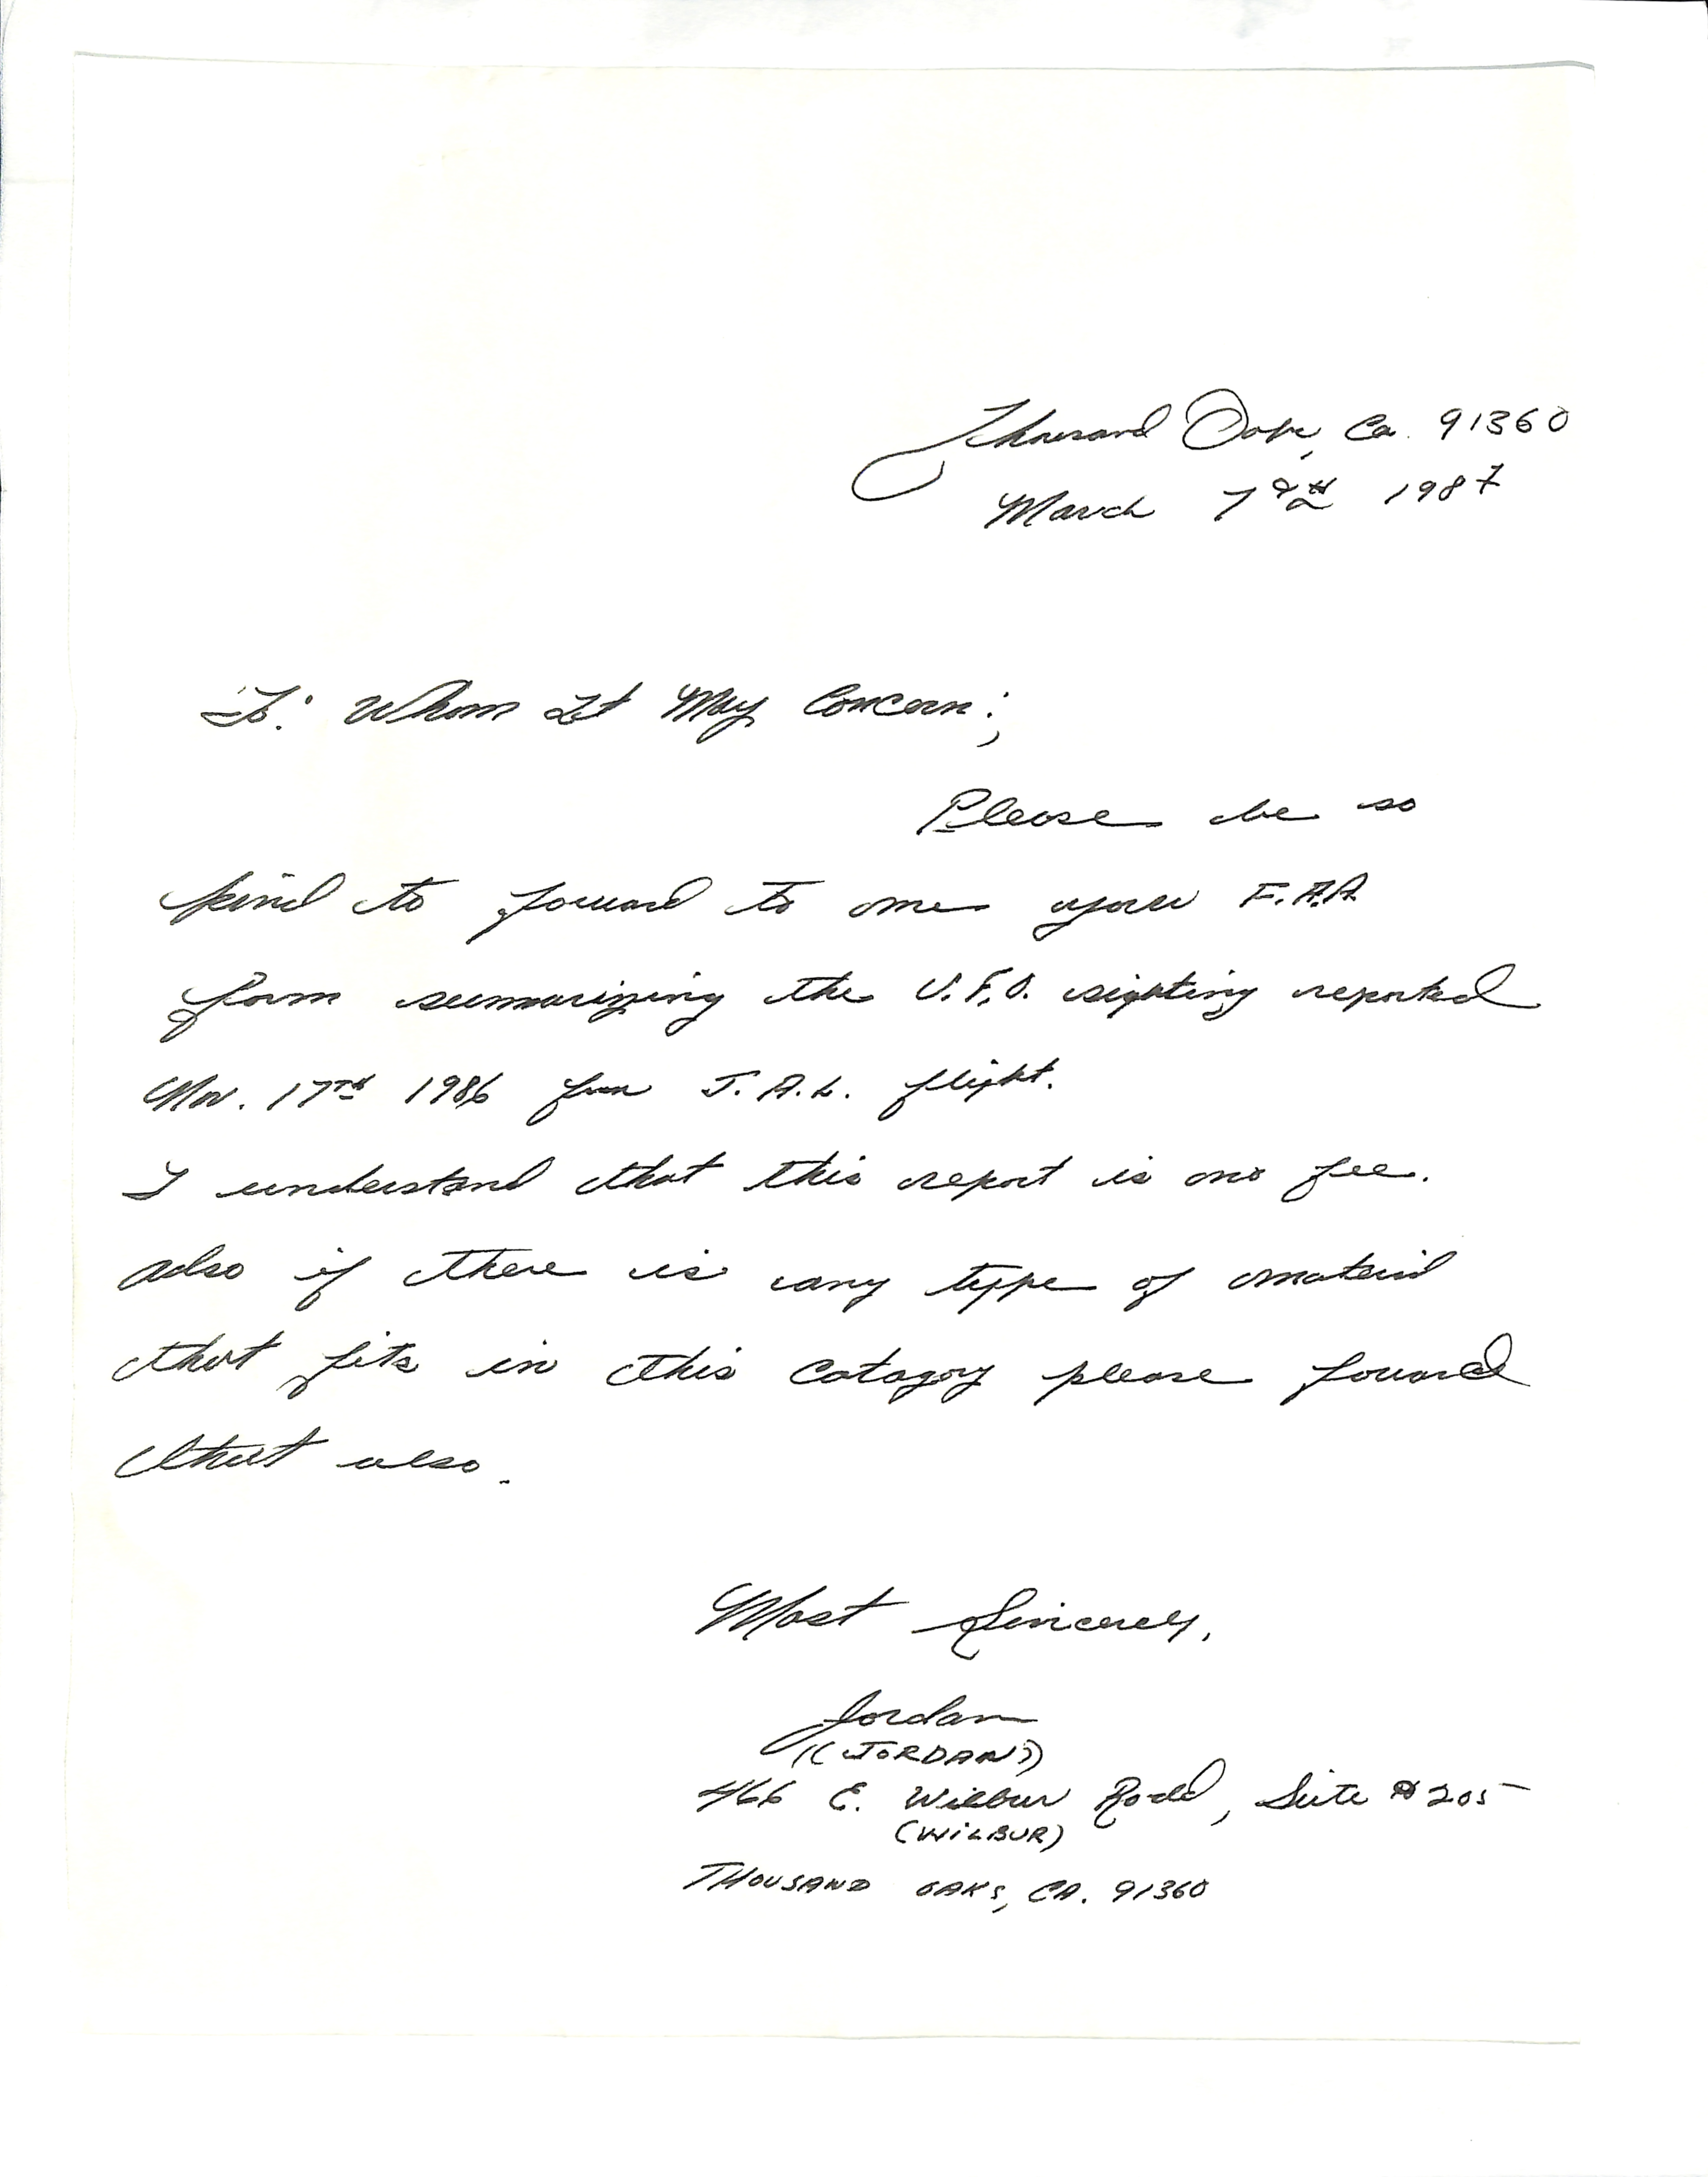 Thousand Oaks, Ca. 91360
March 7th 1987
To: Whom It May Concern:,
Please be so
kind to foward to me your F.A.A.
form summarizing the U.F.O. sighting reported
Nov. 17th 1986 from J.A.L. flight.
I understand that this report is no fee.
Also if there is any type of material
that fits in this catagory please foward
that also.
Most Sincerely,
Jordan
((JORDAN))
466 E. Wilbur Road, Suite #205
(WILBUR)
THOUSAND OAKS, CA. 91360